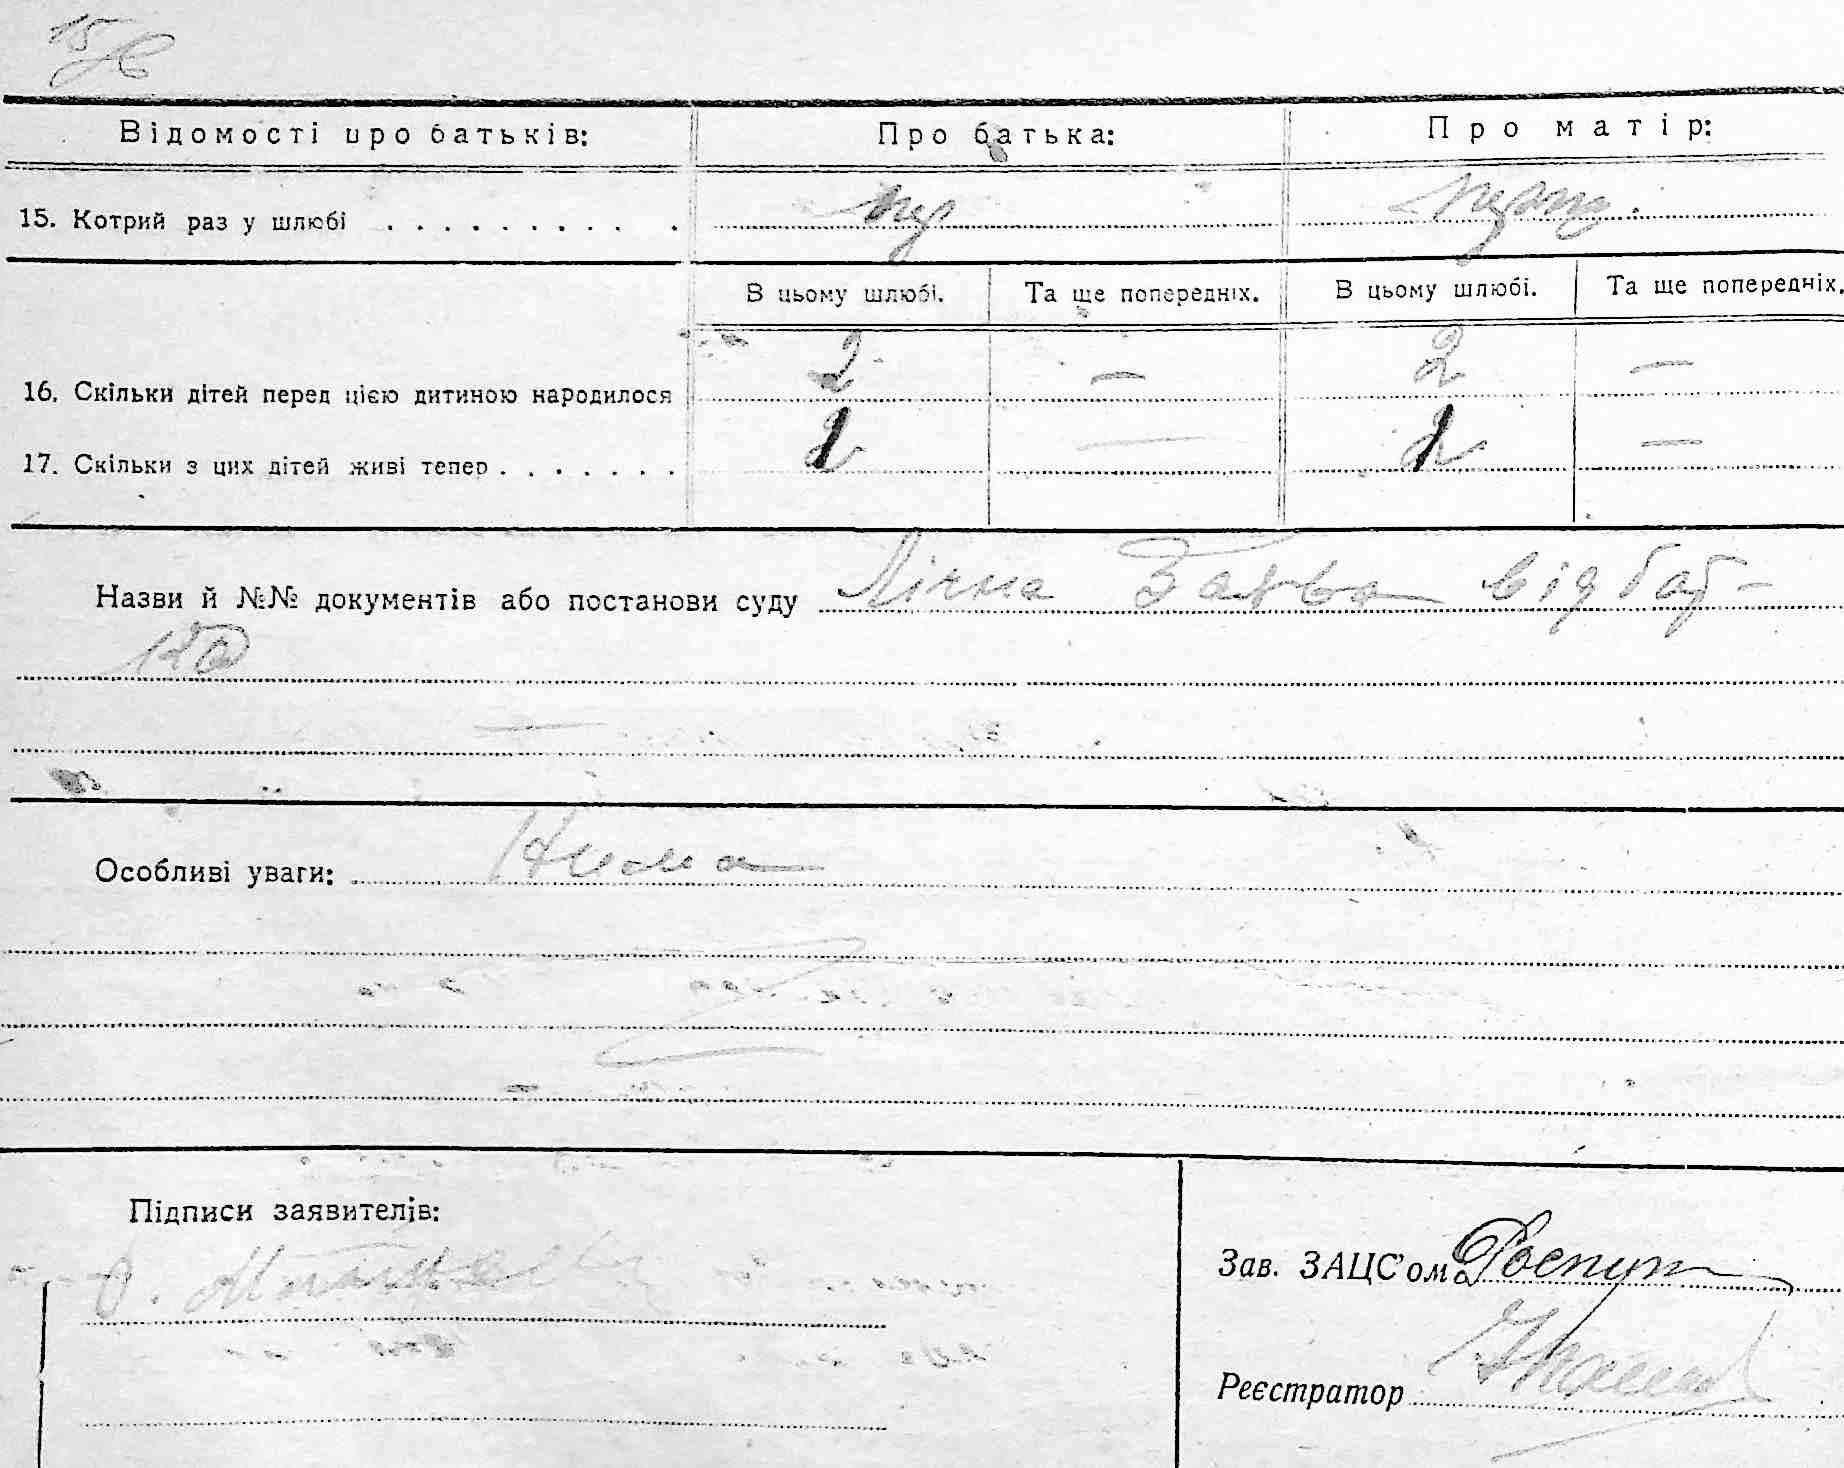 15
Відомості про батьків:
Про батька:
Про матір:
15. Котрий раз у шлюбі . . . . . . . . . .
В цьому шлюбі.
Та ще попередніх.
В цьому шлюбі.
Та ще попередніх.
16. Скільки дітей перед цією дитиною народилося
2 — 2 —
17. Скільки з цих дітей живі тепер . . . . . . .
— —
Назви й №№ документів або постанови суду Лічна Заява від бать-
ка
Особливі уваги: Нема
Підписи заявителів:
Зав. ЗАЦС'ом
Реєстратор